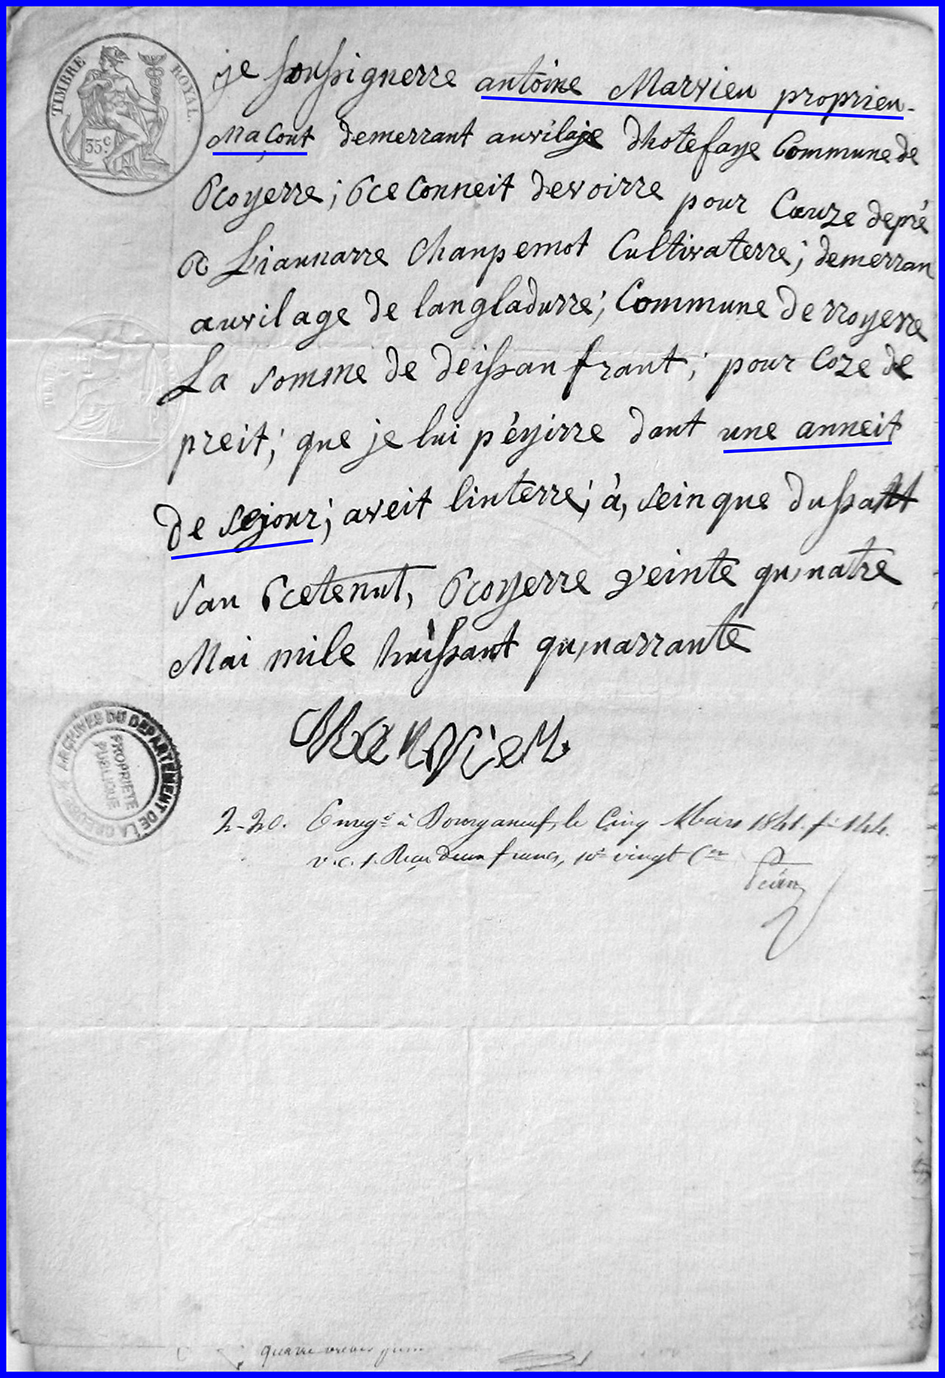 TIMBRE ROYAL.
35 c
je soussignerre antoine Marvieu proprieu-
Maçont demerrant auvilaje dhotefaye Commune de
Royerre; Reconneit devoirre pour Cauze depré
a Liaunarre Chanpemot Cultivaterre; demerran
auvilage de langladurre; Commune de rroyerre
La somme de deissan frant; pour Coze de
preit; que je lui péyirre dant une anneit
de sejour; aveit linterre; à, seinque dussatt
san Retenut, Royerre veinte qu,natre
Mai mile huissant qu,narrante
Marvieu
ARCHIVES DU DEPARTEMENT DE LA CREUSE
PROPRIETE PUBLIQUE
2-20. Enregé à Bourganeuf, le Cinq Mars 1841. fo 144.
v. c. 1. Reçu deux francs, 10e vingt Cen